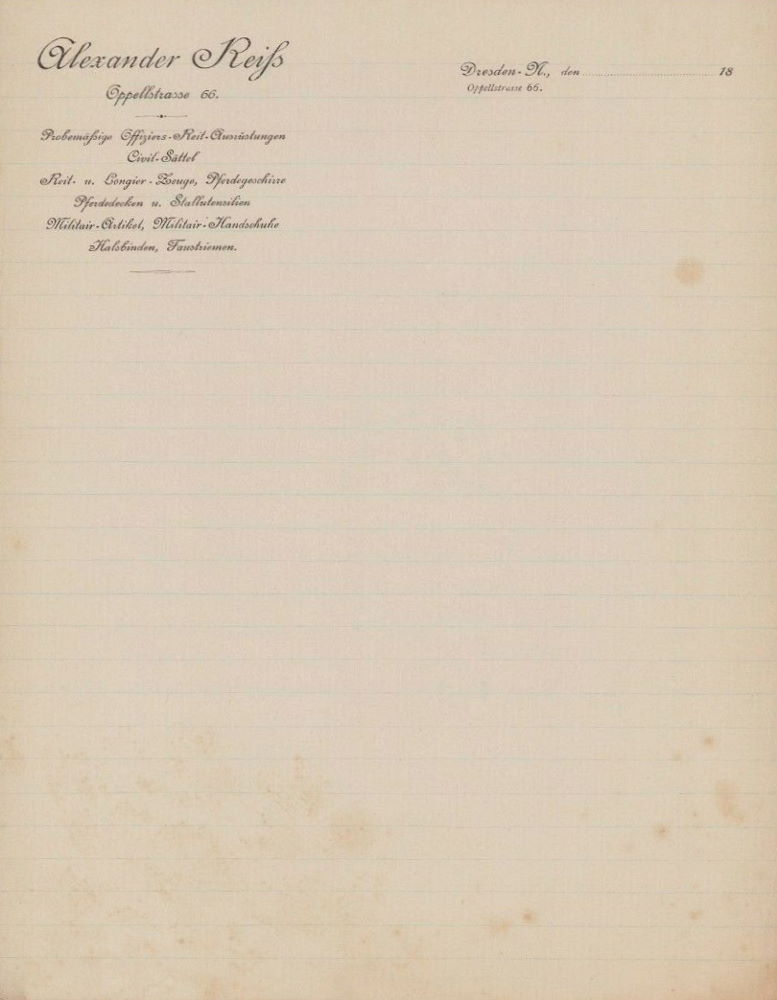 Alexander Reiß
Oppellstrasse 66.
Probemäßige Offiziers-Reit-Ausrüstungen
Civil-Sättel
Reit- u. Longier-Zeuge, Pferdegeschirre
Pferdedecken u. Stallutensilien
Militair-Artikel, Militair-Handschuhe
Halsbinden, Faustriemen.
Dresden-N., den 18
Oppellstrasse 66.